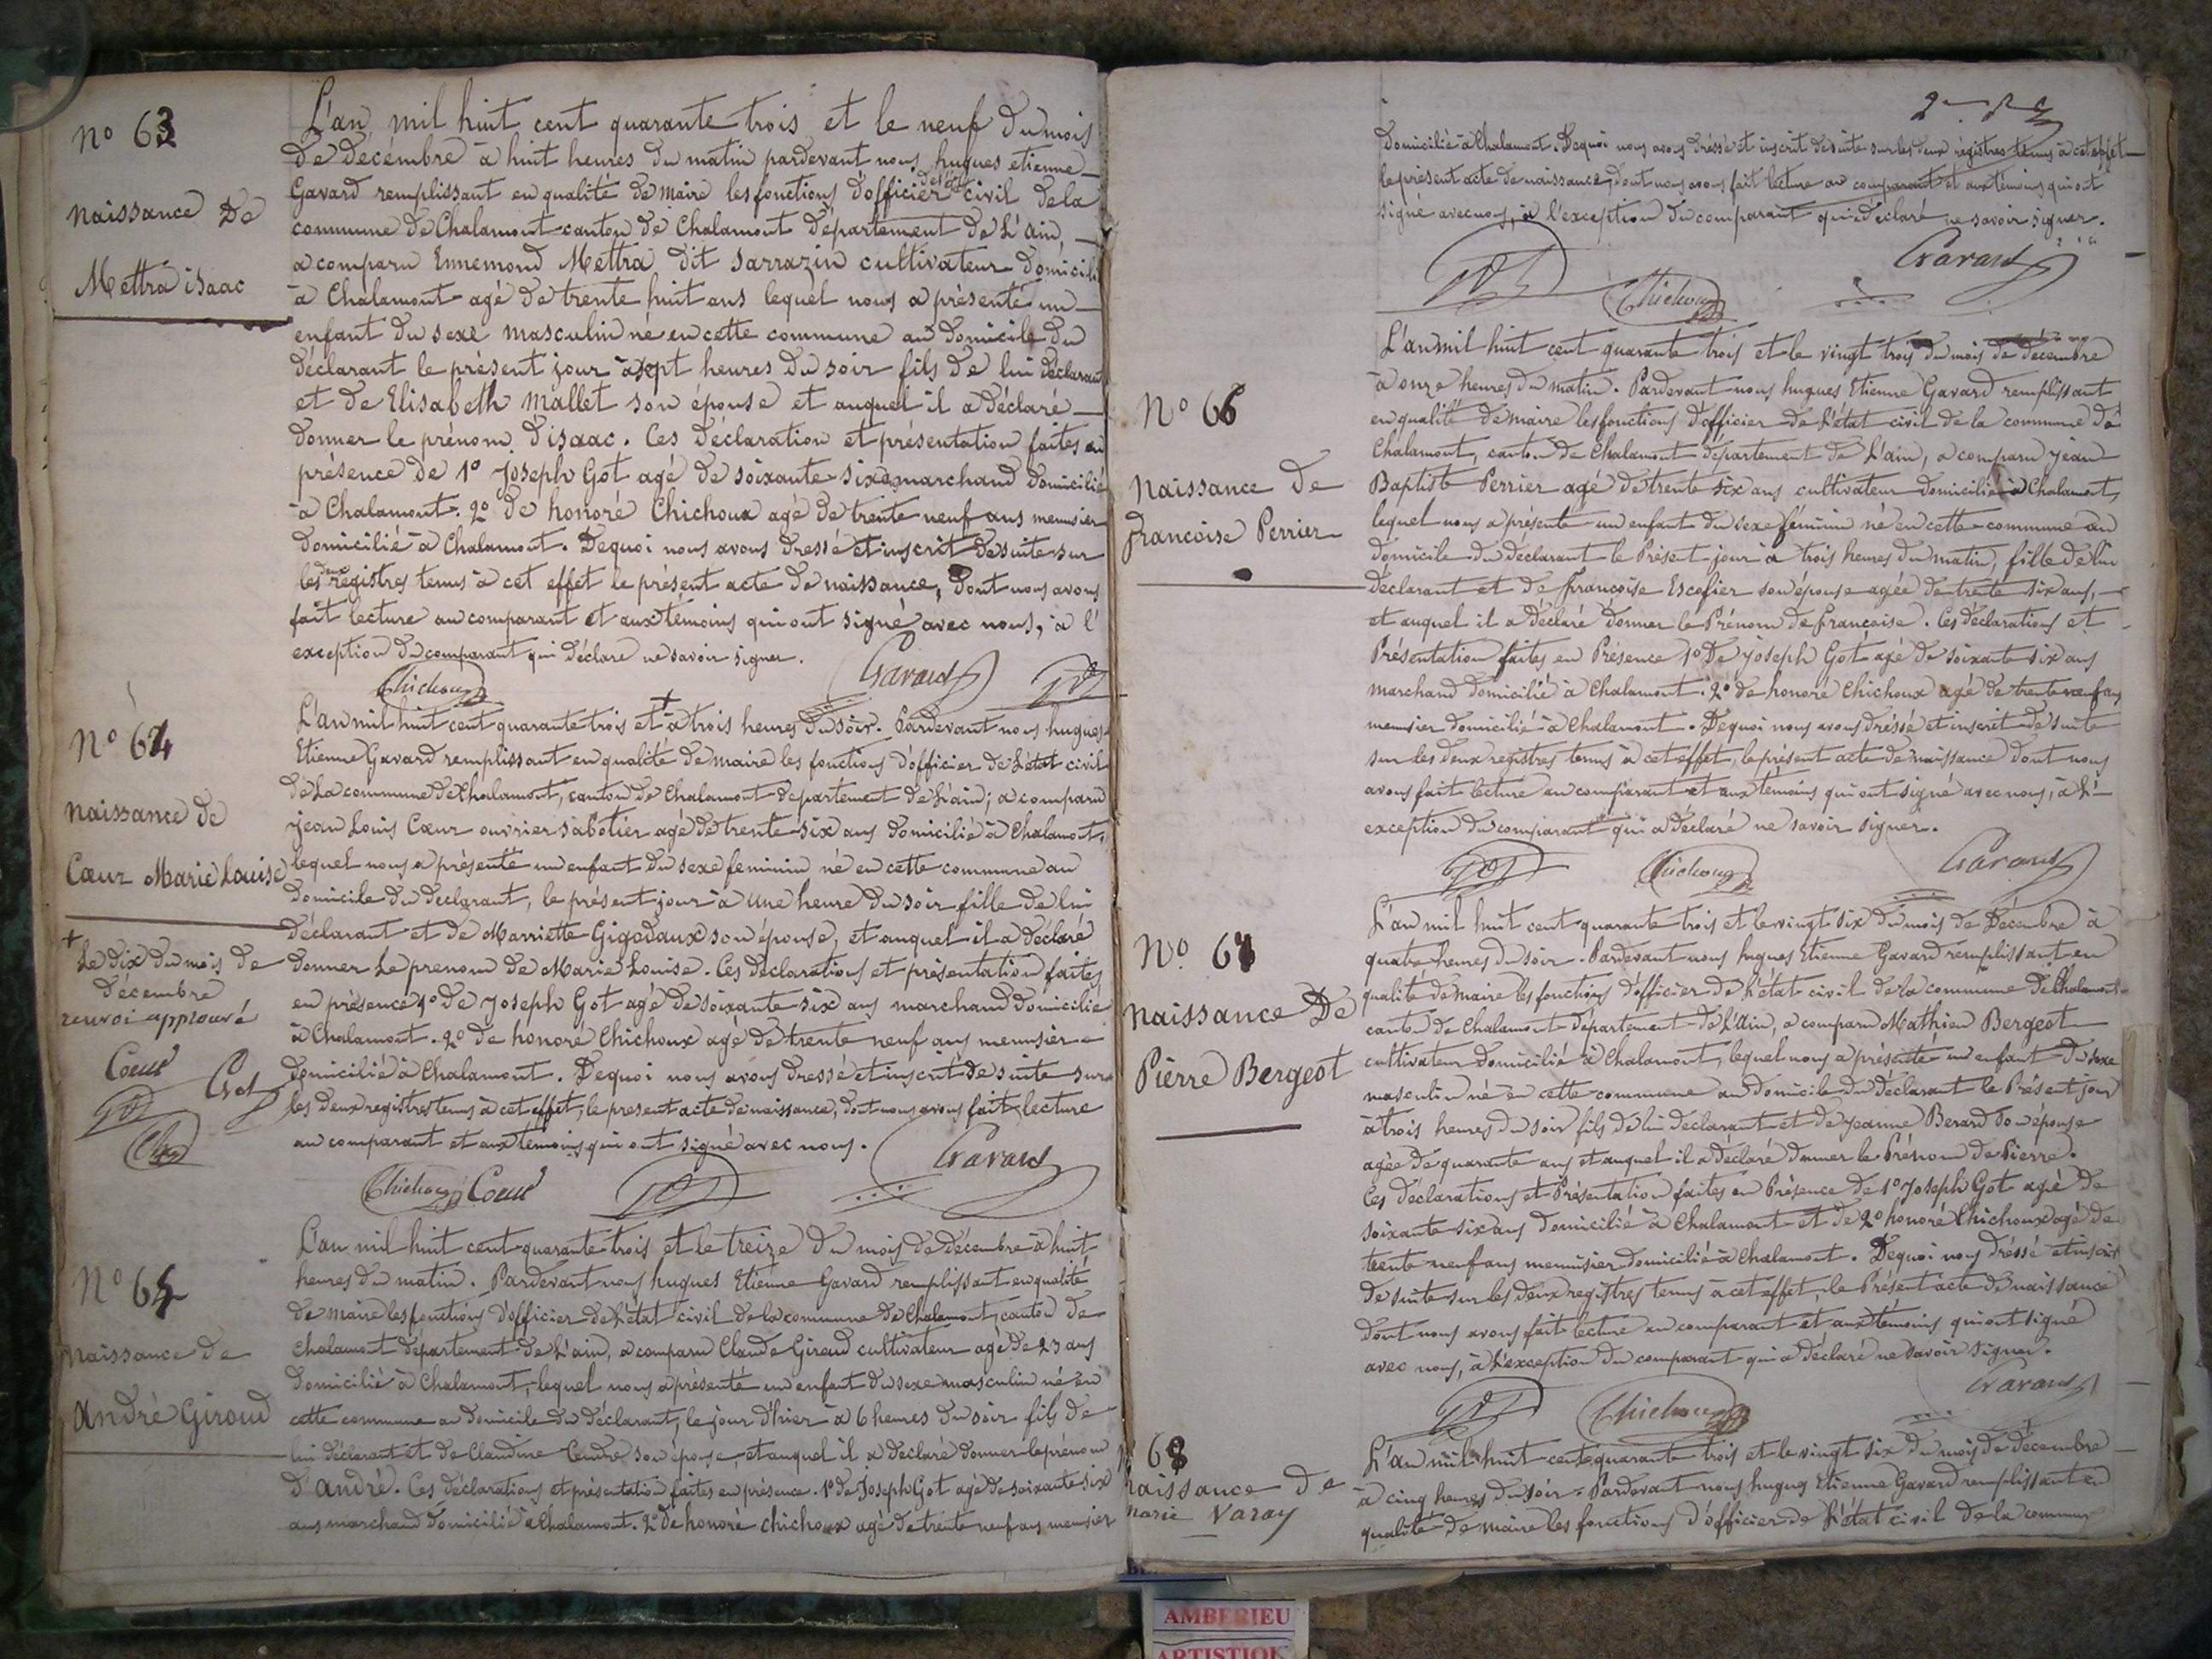 No 63
naissance De
Mettra isaac
L'an mil huit cent quarante trois et le neuf du mois
de décembre à huit heures du matin pardevant nous hugues etienne
Gavard remplissant en qualité de maire les fonctions d'officier de l'état civil dela
commune de Chalamont canton de Chalamont département de L'ain,
a comparu Ennemond Mettra dit Sarrazin cultivateur domicilié
à Chalamont agé de trente huit ans lequel nous a présenté un
enfant du sexe masculin né en cette commune au domicile du
déclarant le présent jour à sept heures du soir fils de lui déclarant
et de Elisabeth Mallet son épouse et auquel il a déclaré
donner le prénom d'isaac. Ces déclaration et présentation faites en
présence de 1o Joseph Got agé de soixante six marchand domicilié
à Chalamont. 2o de honoré Chichoux agé de trente neuf ans menusier
domicilié à Chalamont. Dequoi nous avons dressé et inscrit desuite sur
les deux régistres tenus à cet effet le présent acte de naissance, dont nous avons
fait lecture au comparant et aux temoins qui ont signé avec nous, à l'
exception du comparant qui déclare ne savoir signer.
Chichoux Gavard Got
No 64
naissance de
Cœur Marie Louise
+ Le dix du mois de
décembre
renvoi approuvé
Coeur
Got
L'an mil huit cent quarante trois et + à trois heures du soir. Pardevant nous hugues
Etienne Gavard remplissant en qualité de maire les fonctions d'officier de L'état civil
de La commune de Chalamont, canton de Chalamont departement de L'ain; a comparu
jean Louis Cœur ouvrier sabotier agé de trente six ans domicilié à Chalamont,
lequel nous a présenté un enfant du sexe feminin né en cette commune au
domicile du declarant, le présent jour à une heure du soir fille de lui
déclarant et de Marriette Gigodaux son épouse, et auquel il a déclaré
donner le prenom de Marie Louise. Ces declarations et présentation faites
en présence 1o de Joseph Got agé de soixante six ans marchand domicilié
à Chalamont. 2o de honoré Chichoux agé de trente neuf ans menusier
domicilié à Chalamont. Dequoi nous avons dressé et inscrit de suite sur
les deux registres tenus à cet effet, le present acte de naissance, dont nous avons fait lecture
au comparant et aux temoins qui ont signé avec nous.
Chichoux Coeur Got Gavard
No 65
naissance de
André Giroud
L'an mil huit cent quarante trois et le treize du mois de décembre à huit
heures du matin. Pardevant nous hugues Etienne Gavard remplissant en qualité
de maire les fonctions d'officier de L'état civil de la commune de Chalamont, canton de
Chalamont département de L'ain, a comparu Claude Giroud cultivateur agé de 23 ans
domicilié à Chalamont, lequel nous a présenté un enfant du sexe masculin né en
cette commune au domicile du déclarant, le jour d'hier à 6 heures du soir fils de
lui déclarant et de Claudine son épouse, et auquel il a déclaré donner le prénom
d'André. Ces déclarations et présentation faites en présence. 1o de Joseph Got agé de soixante six
ans marchand domicilié à Chalamont. 2o de honoré chichoux agé de trente neuf ans menusier
domicilié à Chalamont. Dequoi nous avons dressé et inscrit desuite sur les deux régistres tenus à cet effet
le présent acte de naissance, dont nous avons fait lecture au comparant et aux témoins qui ont
signé avec nous, à l'exception du comparant qui a déclaré ne savoir signer.
Got Chichoux Gavard
No 66
Naissance de
francoise Perrier
L'an mil huit cent quarante trois et le vingt trois du mois de décembre
à onze heures du matin. Pardevant nous hugues Etienne Gavard remplissant
en qualité de maire les fonctions d'officier de L'état civil de la commune de
Chalamont, canton de Chalamont département de L'ain, a comparu jean
Baptiste Perrier agé de trente six ans cultivateur domicilié à Chalamont,
lequel nous a présenté un enfant du sexe féminin né en cette commune au
domicile du déclarant le Présent jour à trois heures du matin, fille de lui
déclarant et de françoise Escofier son épouse agée de trente six ans,
et auquel il a déclaré donner le Prénom de francoise. Ces déclarations et
Présentation faites en Présence 1o De joseph Got agé de soixante six ans
marchand domicilié à Chalamont. 2o de honoré Chichoux agé de trente neuf ans
menusier domicilié à Chalamont. Dequoi nous avons dréssé et inscrit de suite
sur les deux registres tenus à cet effet, le présent acte de naissance dont nous
avons fait lecture au comparant et aux témoins qui ont signé avec nous, à L'
exception du comparant qui a déclaré ne savoir signer.
Got Chichoux Gavard
No. 67
naissance De
Pierre Bergeot
L'an mil huit cent quarante trois et le vingt six du mois de Décembre à
quatre heures du soir. Pardevant nous hugues Etienne Gavard remplissant en
qualité de maire les fonctions d'officier de L'état civil de la commune de Chalamont
canton de Chalamont département de L'Ain, a comparu Mathieu Bergeot
cultivateur domicilié à Chalamont, lequel nous a présenté un enfant du sexe
masculin né en cette commune au domicile du déclarant le Présent jour
à trois heures du soir fils de lui declarant et de jeanne Berard son épouse
agée de quarante ans et auquel il a déclaré donner le Prénom de Pierre.
Ces déclarations et Présentation faites en Présence de 1o Joseph Got agé de
soixante six ans domicilié à Chalamont et de 2o honoré Chichoux agé de
trente neuf ans menuisier domicilié à Chalamont. Dequoi nous dréssé et inscrit
de suite sur les deux registres tenus à cet effet, le Présent acte de naissance
dont nous avons fait lecture au comparant et aux témoins qui ont signé
avec nous, à L'exception du comparant qui a déclaré ne savoir signer.
Got Chichoux Gavard
68
naissance de
marie Varay
L'an mil huit cent quarante trois et le vingt six du mois de décembre
à cinq heures du soir. Pardevant nous hugues Etienne Gavard remplissant en
qualité de maire les fonctions d'officier de L'état civil de la commune
AMBERIEU
ARTISTIQ